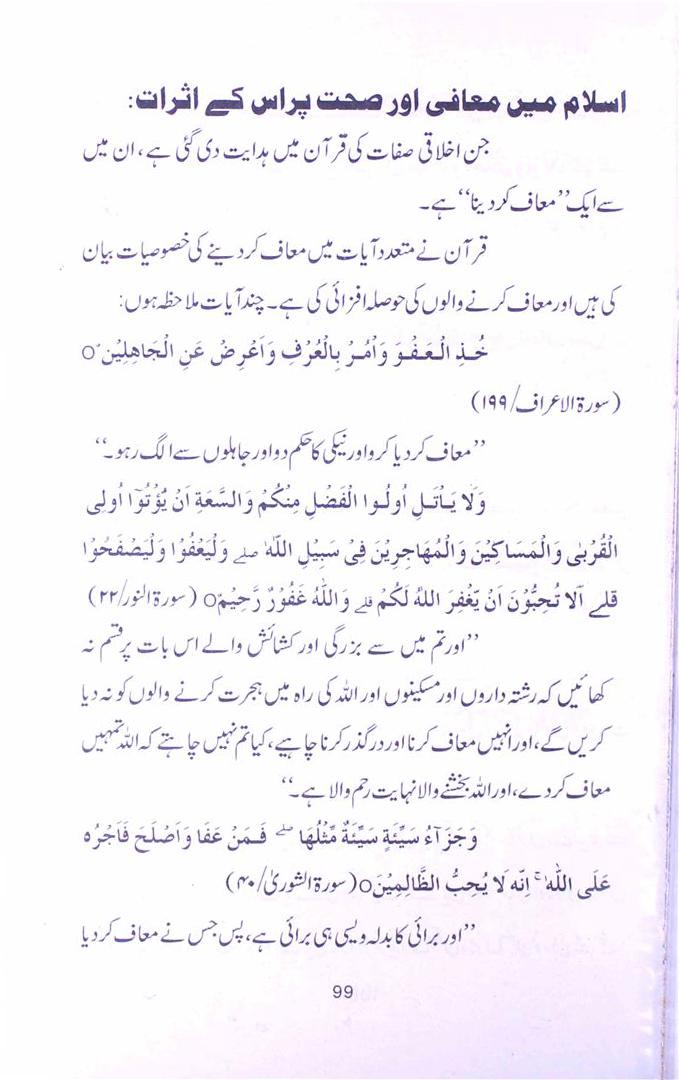 اسلام میں معافی اور صحت پر اس کے اثرات:
جن اخلاقی صفات کی قرآن میں ہدایت دی گئی ہے، ان میں
سے ایک ’’معاف کر دینا‘‘ ہے۔
قرآن نے متعدد آیات میں معاف کر دینے کی خصوصیات بیان
کی ہیں اور معاف کرنے والوں کی حوصلہ افزائی کی ہے۔ چند آیات ملاحظہ ہوں:
خُذِ الْعَفْوَ وَاْمُرْ بِالْعُرْفِ وَاَعْرِضْ عَنِ الْجَاهِلِيْنَ ۝
(سورۃ الاعراف/۱۹۹)
’’معاف کر دیا کرو اور نیکی کا حکم دو اور جاہلوں سے الگ رہو۔‘‘
وَلَا يَاْتَلِ اُولُوا الْفَضْلِ مِنْكُمْ وَالسَّعَةِ اَنْ يُّؤْتُوْٓا اُولِى
الْقُرْبٰى وَالْمَسَاكِيْنَ وَالْمُهَاجِرِيْنَ فِىْ سَبِيْلِ اللّٰهِ صلے وَلْيَعْفُوْا وَلْيَصْفَحُوْا
قلے اَلَا تُحِبُّوْنَ اَنْ يَّغْفِرَ اللّٰهُ لَكُمْ قلے وَاللّٰهُ غَفُوْرٌ رَّحِيْمٌ۝ (سورۃ النور/۲۲)
’’اور تم میں سے بزرگی اور کشائش والے اس بات پر قسم نہ
کھائیں کہ رشتہ داروں اور مسکینوں اور اللہ کی راہ میں ہجرت کرنے والوں کو نہ دیا
کریں گے، اور انہیں معاف کرنا اور درگذر کرنا چاہیے، کیا تم نہیں چاہتے کہ اللہ تمہیں
معاف کر دے، اور اللہ بخشنے والا نہایت رحم والا ہے۔‘‘
وَجَزَآءُ سَيِّئَةٍ سَيِّئَةٌ مِّثْلُهَا ۖ فَمَنْ عَفَا وَاَصْلَحَ فَاَجْرُهٗ
عَلَى اللّٰهِ ۚ اِنَّهٗ لَا يُحِبُّ الظَّالِمِيْنَ۝ (سورۃ الشوریٰ/۴۰)
’’اور برائی کا بدلہ ویسی ہی برائی ہے، پس جس نے معاف کر دیا
99